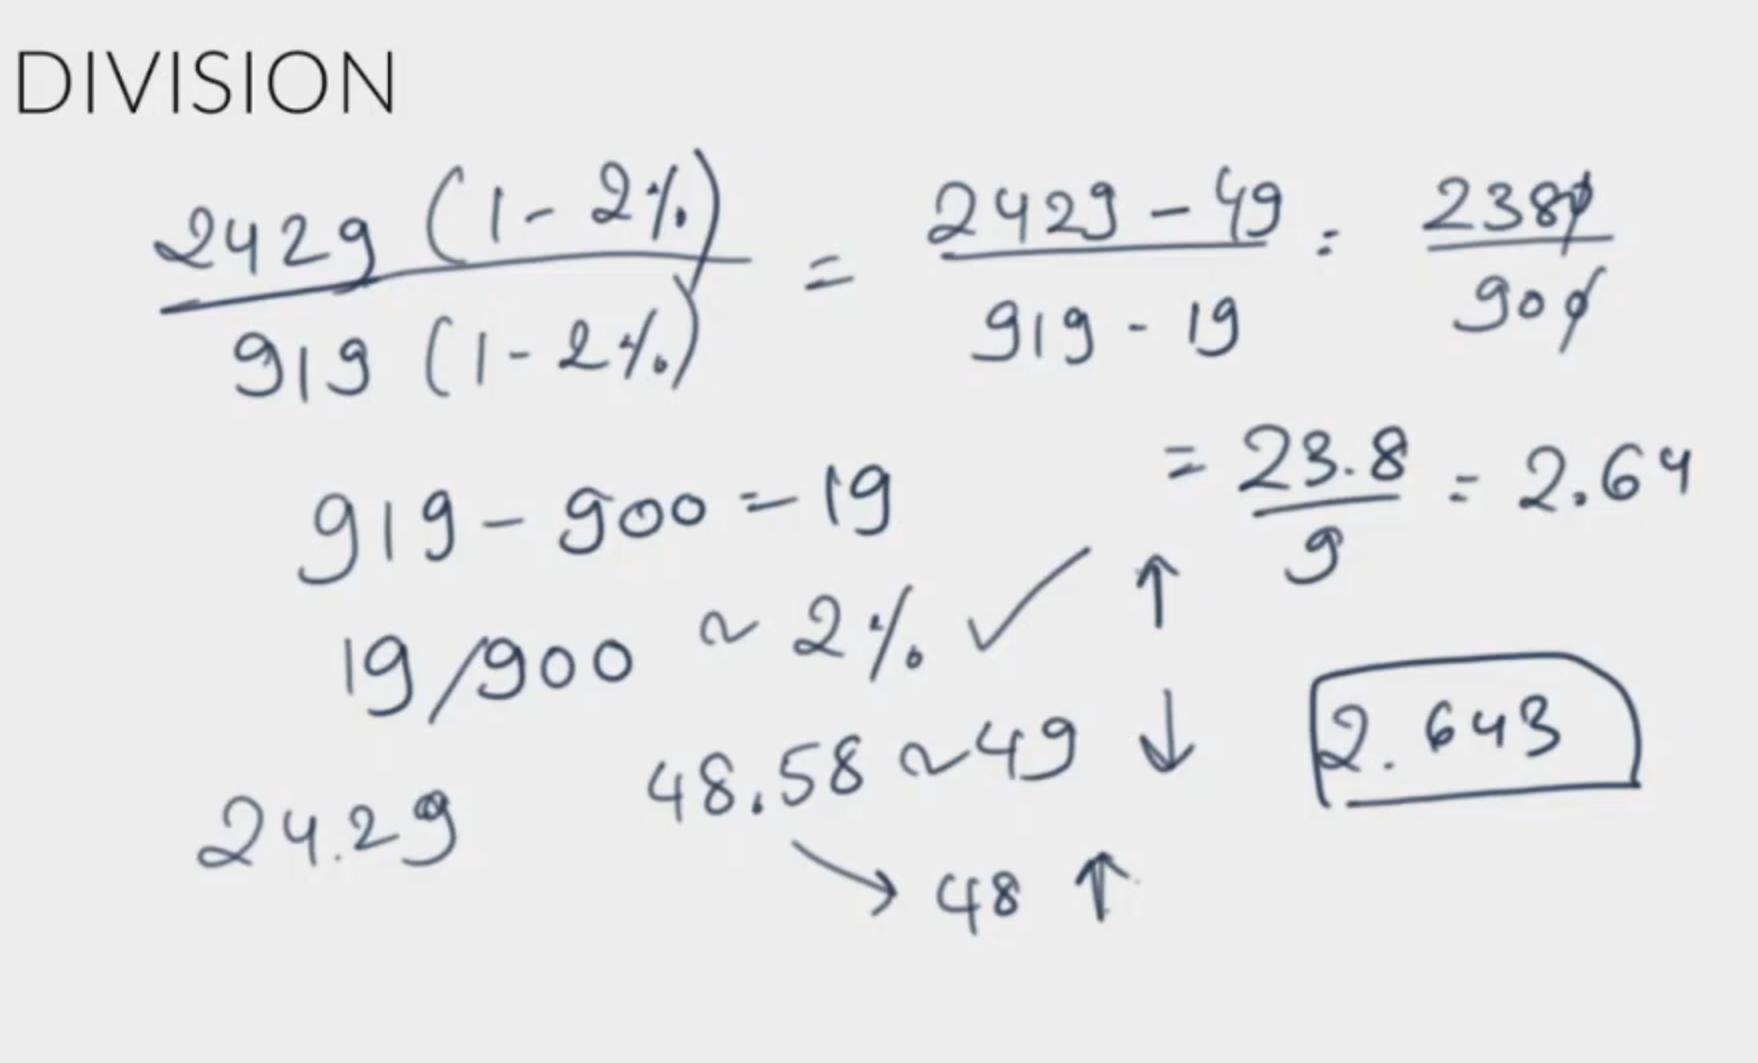 DIVISION
2429 (1 - 2%) / 919 (1 - 2%) = 2429 - 49 / 919 - 19 = 2380 / 900
= 23.8 / 9 = 2.64
919 - 900 = 19
19/900 ~ 2% ✓ ↑
48.58 ~ 49 ↓
2.643
24.29
→ 48 ↑